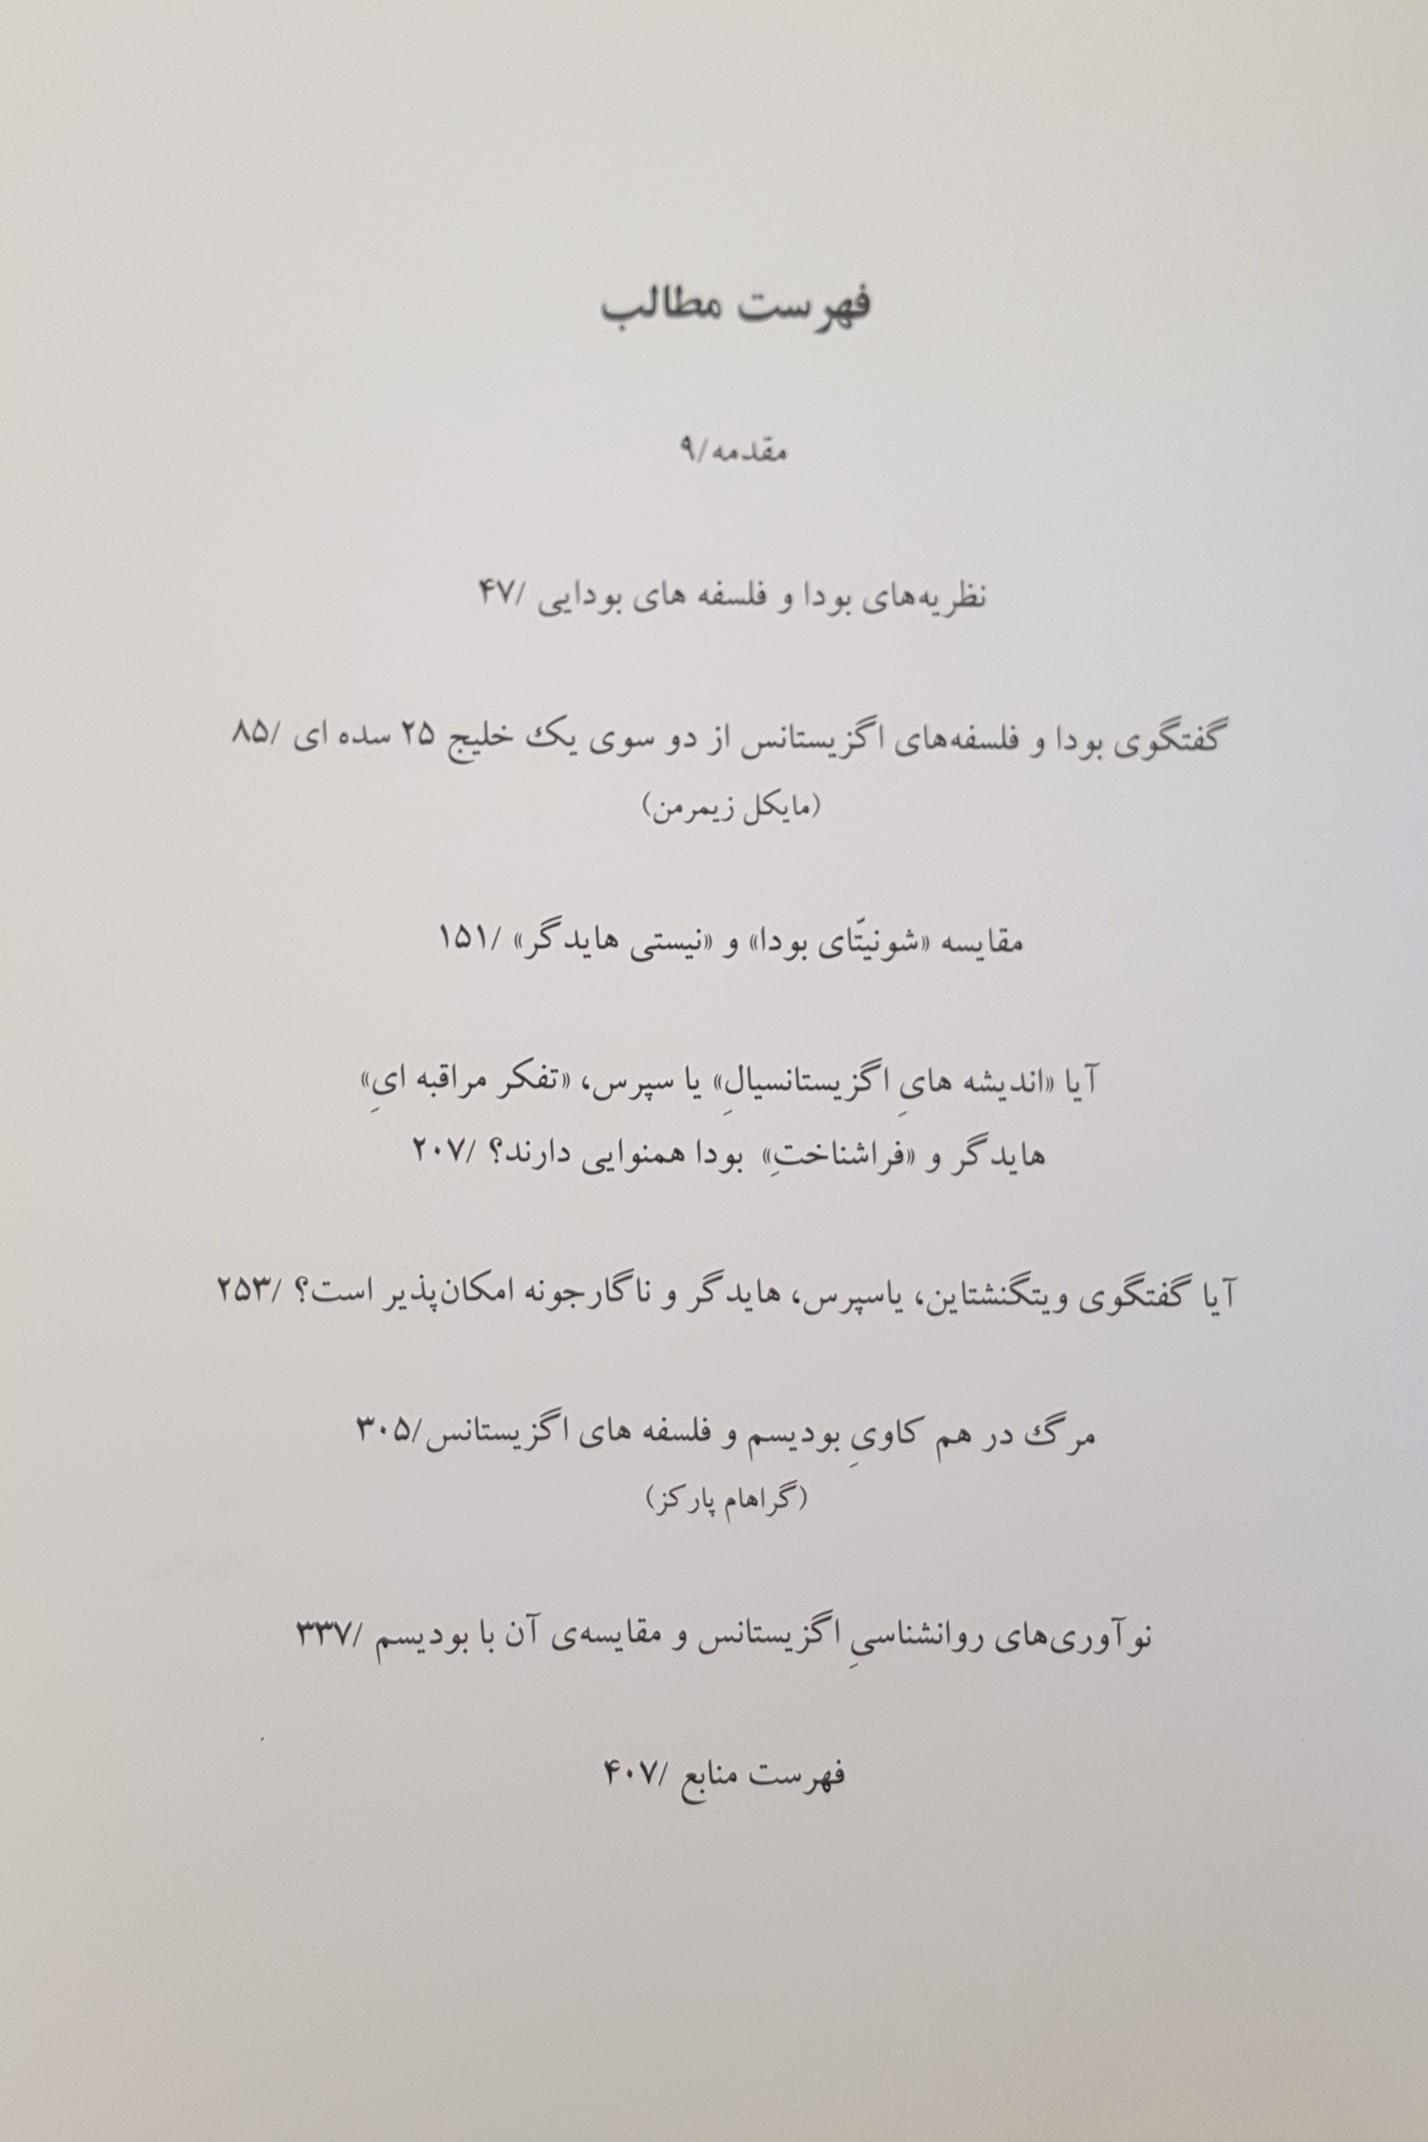 فهرست مطالب
مقدمه/۹
نظریه‌های بودا و فلسفه های بودایی /۴۷
گفتگوی بودا و فلسفه‌های اگزیستانس از دو سوی یک خلیج ۲۵ سده ای /۸۵
(مایکل زیمرمن)
مقایسه «شونیتّای بودا» و «نیستی هایدگر» /۱۵۱
آیا «اندیشه هایِ اگزیستانسیالِ» یا سپرس، «تفکر مراقبه ایِ»
هایدگر و «فراشناختِ» بودا همنوایی دارند؟ /۲۰۷
آیا گفتگوی ویتگنشتاین، یاسپرس، هایدگر و ناگارجونه امکان‌پذیر است؟ /۲۵۳
مرگ در هم کاویِ بودیسم و فلسفه های اگزیستانس/۳۰۵
(گراهام پارکز)
نوآوری‌های روانشناسیِ اگزیستانس و مقایسه‌ی آن با بودیسم /۳۳۷
فهرست منابع /۴۰۷